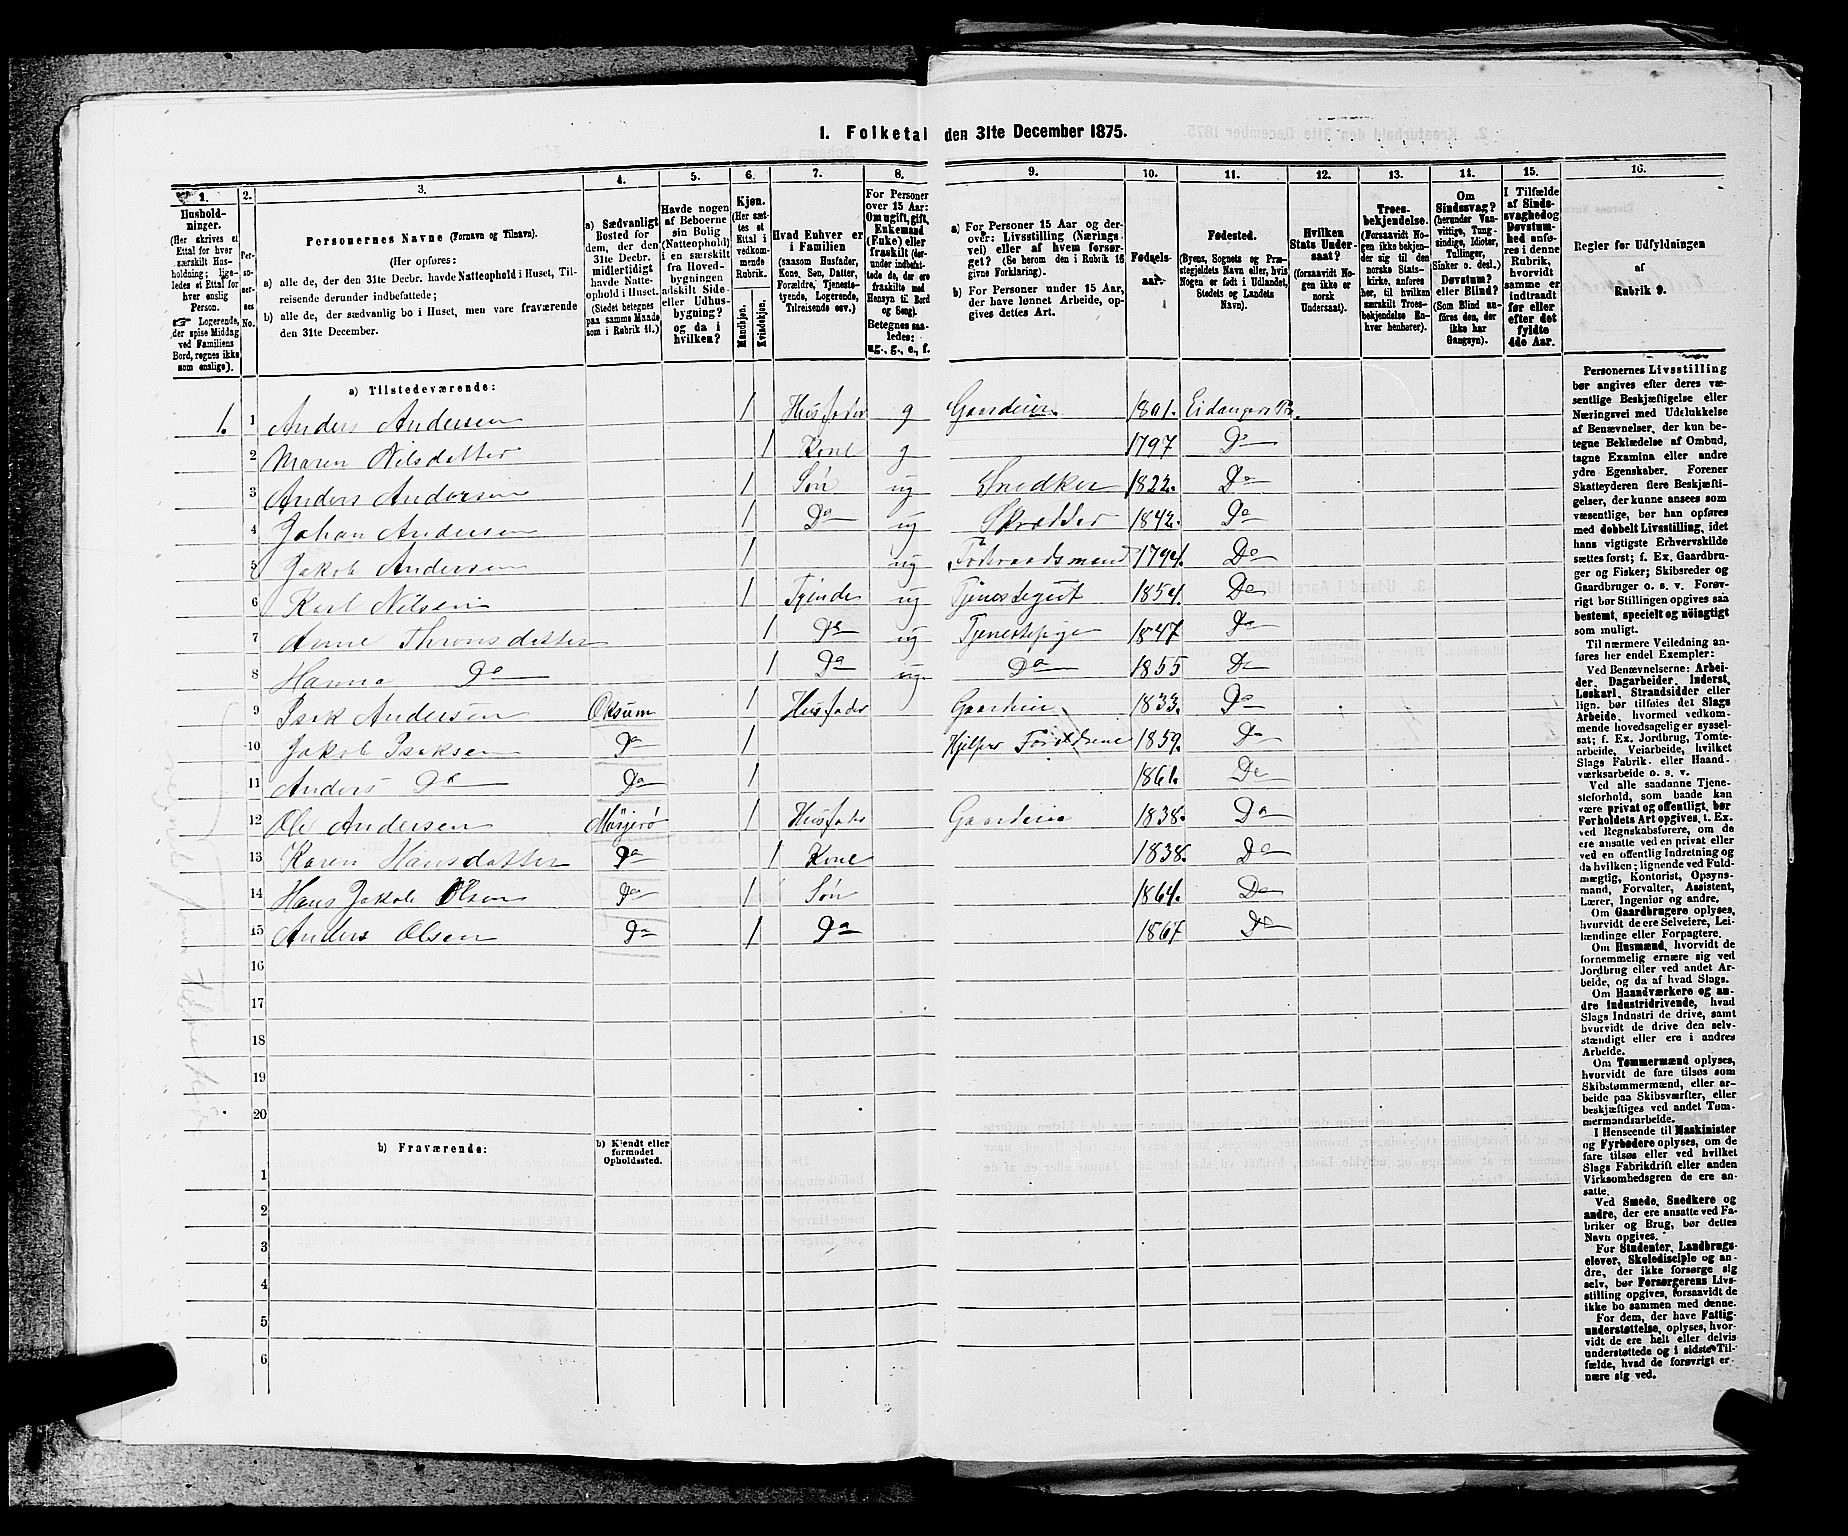 1. Folketal den 31te December 1875.
1. 2. 3. 4. 5. 6. 7. 8. 9. 10. 11. 12. 13. 14. 15. 16.
Hushold-
ninger.
(Her skrives et
Ettal for hver
særskilt Hus-
holdning; lige-
ledes et Ettal for
hver enslig
Person.
☞ Logerende,
der spise Middag
ved Familiens
Bord, regnes ikke
som enslige).
Per-
so-
ner-
nes
No.
Personernes Navne (Fornavn og Tilnavn).
(Her opføres:
a) alle de, der den 31te Decbr. havde Natteophold i Huset, Til-
reisende derunder indbefattede;
b) alle de, der sædvanlig bo i Huset, men vare fraværende
den 31te December.
a) Sædvanligt
Bosted for
dem, der den
31te Decbr.
midlertidigt
havde Natte-
ophold i Huset.
(Stedet betegnes
paa samme Maade
som i Rubrik 11.)
Havde nogen
af Beboerne
sin Bolig
(Natteophold)
i en særskilt
fra Hoved-
bygningen
adskilt Side-
eller Udhus-
bygning?
og da i
hvilken?
Kjøn.
(Her sæt-
tes et
Ettal i
vedkom-
mende
Rubrik.
Mandkjøn.
Kvindekjøn.
Hvad Enhver er
i Familien
(saasom Husfader,
Kone, Søn, Datter,
Forældre, Tjeneste-
tyende, Logerende,
Tilreisende osv.)
For Personer
over 15 Aar:
Om ugift, gift,
Enkemand
(Enke) eller
fraskilt (her-
under indbefat-
tede de, der ere
fraskilte med
Hensyn til Bord
og Seng).
Betegnes saa-
ledes:
ug., g., e., f.
a) For Personer 15 Aar og der-
over: Livsstilling (Nærings-
vei) eller af hvem forsør-
get? (Se herom den i Rubrik 16
givne Forklaring).
b) For Personer under 15 Aar,
der have lønnet Arbeide, op-
gives dettes Art.
Fødsels-
aar.
Fødested.
(Byens, Sognets og Præ-
stegjeldets Navn eller, hvis
Nogen er født i Udlandet,
Stedets og Landets
Navn).
Hvilken
Stats Under-
saat?
(forsaavidt No-
gen ikke er
norsk
Undersaat).
Troes-
bekjendelse.
(Forsaavidt No-
gen ikke bekjen-
der sig til den
norske Stats-
kirke, anføres
her, til hvilken
særskilt Troes-
bekjendelse En-
hver henhører).
Om
Sindssvag?
(herunder Van-
vittige, Tung-
sindige, Idioter,
Tullinger,
Sinker o. desl.)
Døvstum?
eller Blind?
(Som Blind an-
føres den, der
ikke har
Gangsyn).
I Tilfælde
af Sinds-
svaghed og
Døvstum-
hed anfø-
res i denne
Rubrik,
hvorvidt
samme er
indtraadt
før eller
efter det
fyldte
4de Aar.
Regler for Udfyldningen
af
Rubrik 9.
a) Tilstedeværende:
1. 1 Anders Andersen 1 Husfader g Gaardeier 1801. Eidangers Pr.
2 Maren Nilsdatter 1 Kone g 1797 Do
3 Anders Andersen 1 Søn ug Snedker 1822. Do
4 Johan Andersen 1 Do ug Skrædder 1842. Do
5 Jakob Andersen 1 ug Føderaadsmand 1794. Do
6 Karl Nilsen 1 Tjende ug Tjenestegut 1854. Do
7 Anne Thronsdatter 1 Do ug Tjenestepige 1847 Do
8 Hanna Do 1 Do ug Do 1855 Do
9 Isak Andersen Oksum 1 Husfader Gaardeier 1833. Do
10 Jakob Isaksen Do 1 Hjelper Forældrene 1859. Do
11 Anders Do Do 1 1861. Do
12 Ole Andersen 1 Husfader Gaardeier 1838. Do
13 Karen Hansdatter Do 1 Kone 1838. Do
14 Hans Jakob Olsen Do 1 Søn 1864. Do
15 Anders Olsen Do 1 Do 1867 Do
16
17
18
19
20
b) Fraværende:
b) Kjendt eller
formodet
Opholdssted.
1
2
3
4
5
6
Personernes Livsstilling
bør angives efter deres væ-
sentlige Beskjæftigelse eller
Næringsvei med Udelukkelse
af Benævnelser, der kun be-
tegne Beklædelse af Ombud,
tagne Examina eller andre
ydre Egenskaber. Forener
Skatteyderen flere Beskjæfti-
gelser, der kunne ansees som
væsentlige, bør han opføres
med dobbelt Livsstilling, idet
hans vigtigste Erhvervskilde
sættes først; f. Ex. Gaardbru-
ger og Fisker; Skibsreder og
Gaardbruger o. s. v. Forøv-
rigt bør Stillingen opgives saa
bestemt, specielt og nøiagtigt
som muligt.
Til nærmere Veiledning an-
føres her endel Exempler:
Ved Benævnelserne: Arbei-
der, Dagarbeider, Inderst,
Løskarl, Strandsidder eller
lign. bør tilføies det Slags
Arbeide, hvormed vedkom-
mende hovedsagelig er syssel-
sat; f. Ex. Jordbrug, Tomte-
arbeide, Veiarbeide, hvilket
Slags Fabrik- eller Haand-
værksarbeide o. s. v.
Ved alle saadanne Tjene-
steforhold, som baade kan
være privat og offentligt, bør
Forholdets Art opgives, f. Ex.
ved Regnskabsførere, om de
ere ansatte ved en privat eller
ved en offentlig Indretning og
da hvilken; lignende ved Fuld-
mægtig, Kontorist, Opsyns-
mand, Forvalter, Assistent,
Lærer, Ingeniør og andre.
Om Gaardbrugere oplyses,
hvorvidt de ere Selveiere, Lei-
lændinge eller Forpagtere.
Om Husmænd, hvorvidt de
fornemmelig ernære sig ved
Jordbrug eller ved andet Ar-
beide, og da af hvad Slags.
Om Haandværkere og an-
dre Industridrivende, hvad
Slags Industri de drive, samt
hvorvidt de drive den selv-
stændigt eller ere i andres
Arbeide.
Om Tømmermænd oplyses,
hvorvidt de fare tilsøs som
Skibstømmermænd, eller ar-
beide paa Skibsværfter, eller
beskjæftiges ved andet Tøm-
mermandsarbeide.
I Henseende til Maskinister
og Fyrbødere oplyses, om de
fare tilsøs eller ved hvilket
Slags Fabrikdrift eller anden
Virksomhedsgren de ere an-
satte.
Ved Smede, Snedkere og
andre, der ere ansatte ved Fa-
briker og Brug, bør dettes
Navn opgives.
For Studenter, Landbrugs-
elever, Skoledisciple og an-
dre, der ikke forsørge sig
selv, bør Forsørgerens Livs-
stilling opgives, forsaavidt de
ikke bo sammen med denne.
For dem, der have Fattig-
understøttelse, oplyses, hvor-
vidt de ere helt eller delvis
understøttede og i sidste Til-
fælde, hvad de forøvrigt er-
nære sig ved.